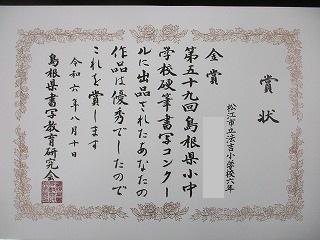 賞状
松江市立法吉小学校六年
金賞
第五十九回島根県小中
学校硬筆書写コンクー
ルに出品されたあなたの
作品は優秀でしたので
これを賞します
令和六年八月十日
島根県書写教育研究会